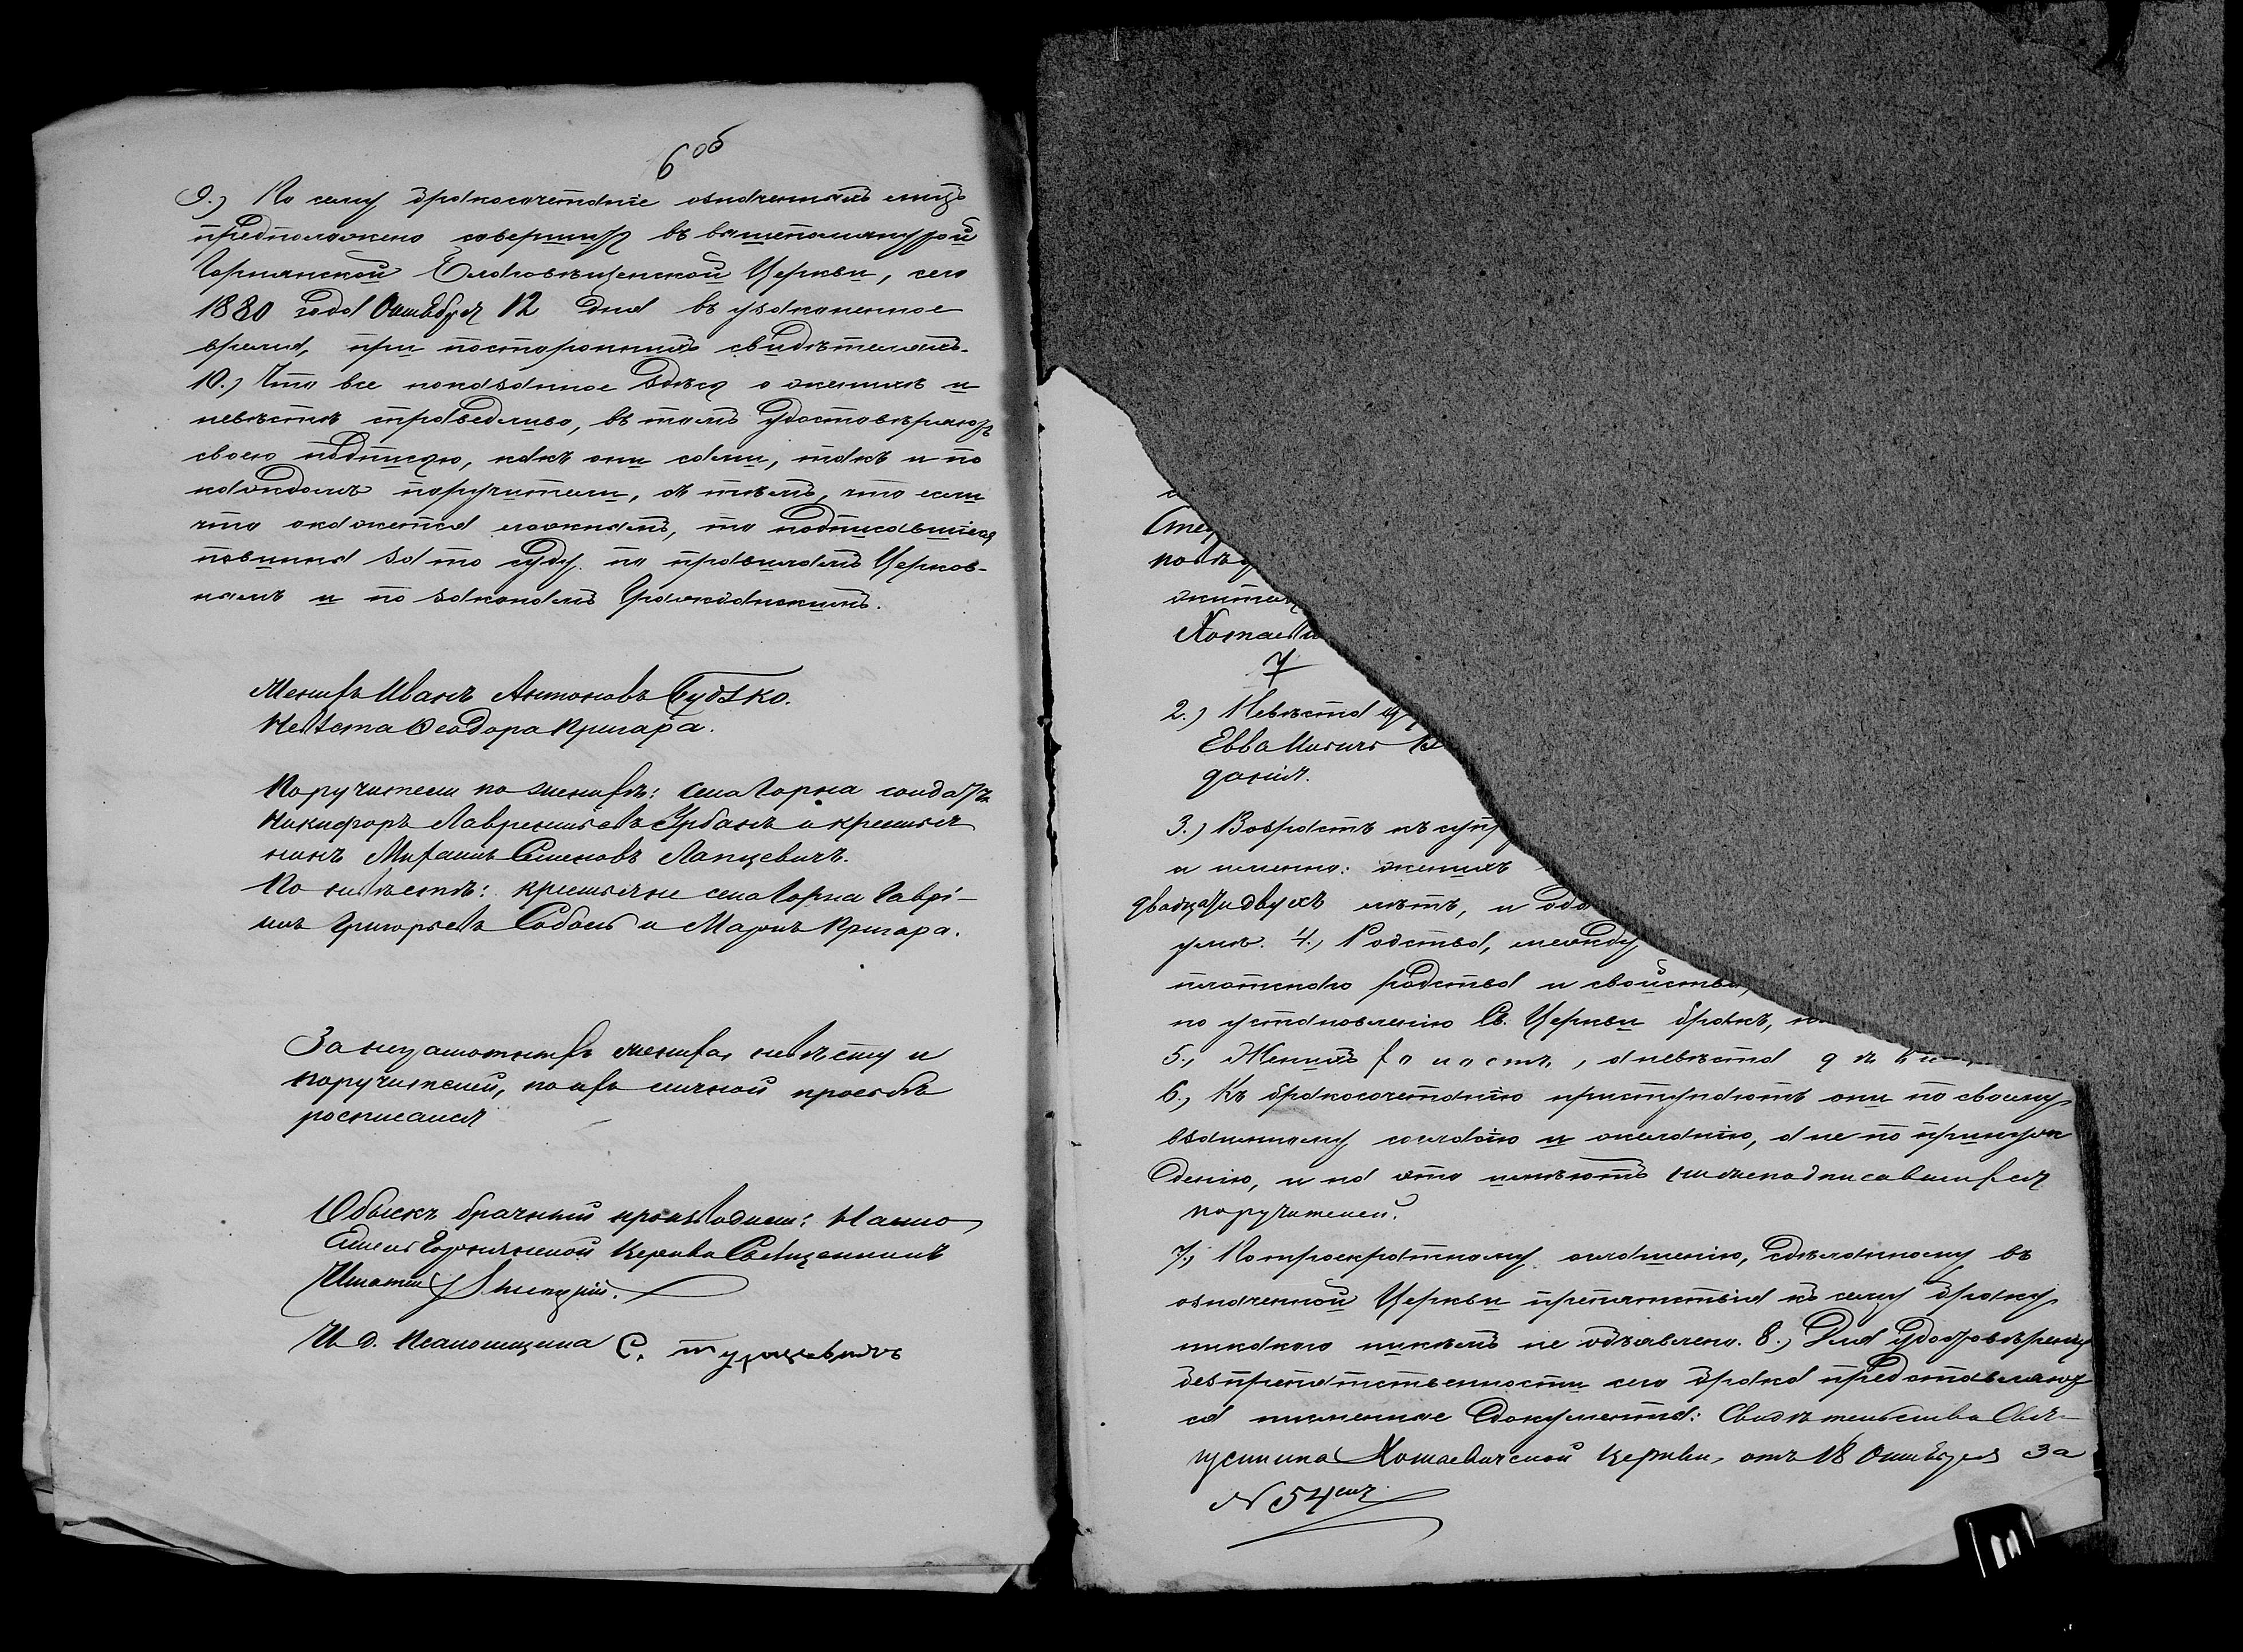 6 об
9.) По сему бракосочетаніе означенныхъ лицъ
предположено совершить въ вышепомянутой
Горнянской Благовѣщенской Церкви, сего
1880 года Октября 12 дня въ узаконенное
время, при постороннихъ свидѣтеляхъ.
10.) Что все показанное здѣсь о женихѣ и
невѣстѣ справедливо, въ томъ удостовѣряютъ
своею подписью, какъ они сами, такъ и по
каждомъ поручители, съ тѣмъ, что если
что окажется ложнымъ, то подписавшіеся
повинны за то суду по правиламъ Церков-
нымъ и по законамъ Гражданскимъ.
Женихъ Иванъ Антоновъ Будько.
Невѣста Ѳеодора Кригара.
Поручители по женихѣ: села Горна солдатъ
Никифоръ Лаврентьевъ Урбанъ и крестья
нинъ Михаилъ Семеновъ Лапцевичъ.
По невѣстѣ: крестьяне села Горна Гаврі-
илъ Григорьевъ Соболь и Маркъ Кригара.
За неграмотныхъ жениха, невѣсту и
поручителей, по ихъ личной просьбѣ
росписался
Обыскъ брачный производили: Насто
ятель Горнянской Церкви Священникъ
Игнатій
И. д. Псаломщика С.
Стеф
жител
Хотаев
7
2.) Невѣста
Евва
данія.
3.) Возрастъ къ супр
и именно: женихъ
двадцати двухъ лѣтъ, и оба
умѣ. 4.) Родства, между
плотскаго родства и свойства,
по установленію Св. Церкви бракъ,
5.) Женихъ холостъ, а невѣста дѣвица
6.) Къ бракосочетанію приступаютъ они по своему
взаимному согласію и желанію, а не по принуж
денію, и на это имѣютъ нижеподписавшихся
поручителей.
7.) По троекратному оглашенію, сдѣланному въ
означенной Церкви препятствія къ сему браку
никакого никѣмъ не объявлено. 8.) Для удостовѣренія
безпрепятственности сего брака представляют
ся письменные документы: Свидѣтельство Свя-
щенника Хотаевичской церкви, отъ 18 Октября за
№ 54